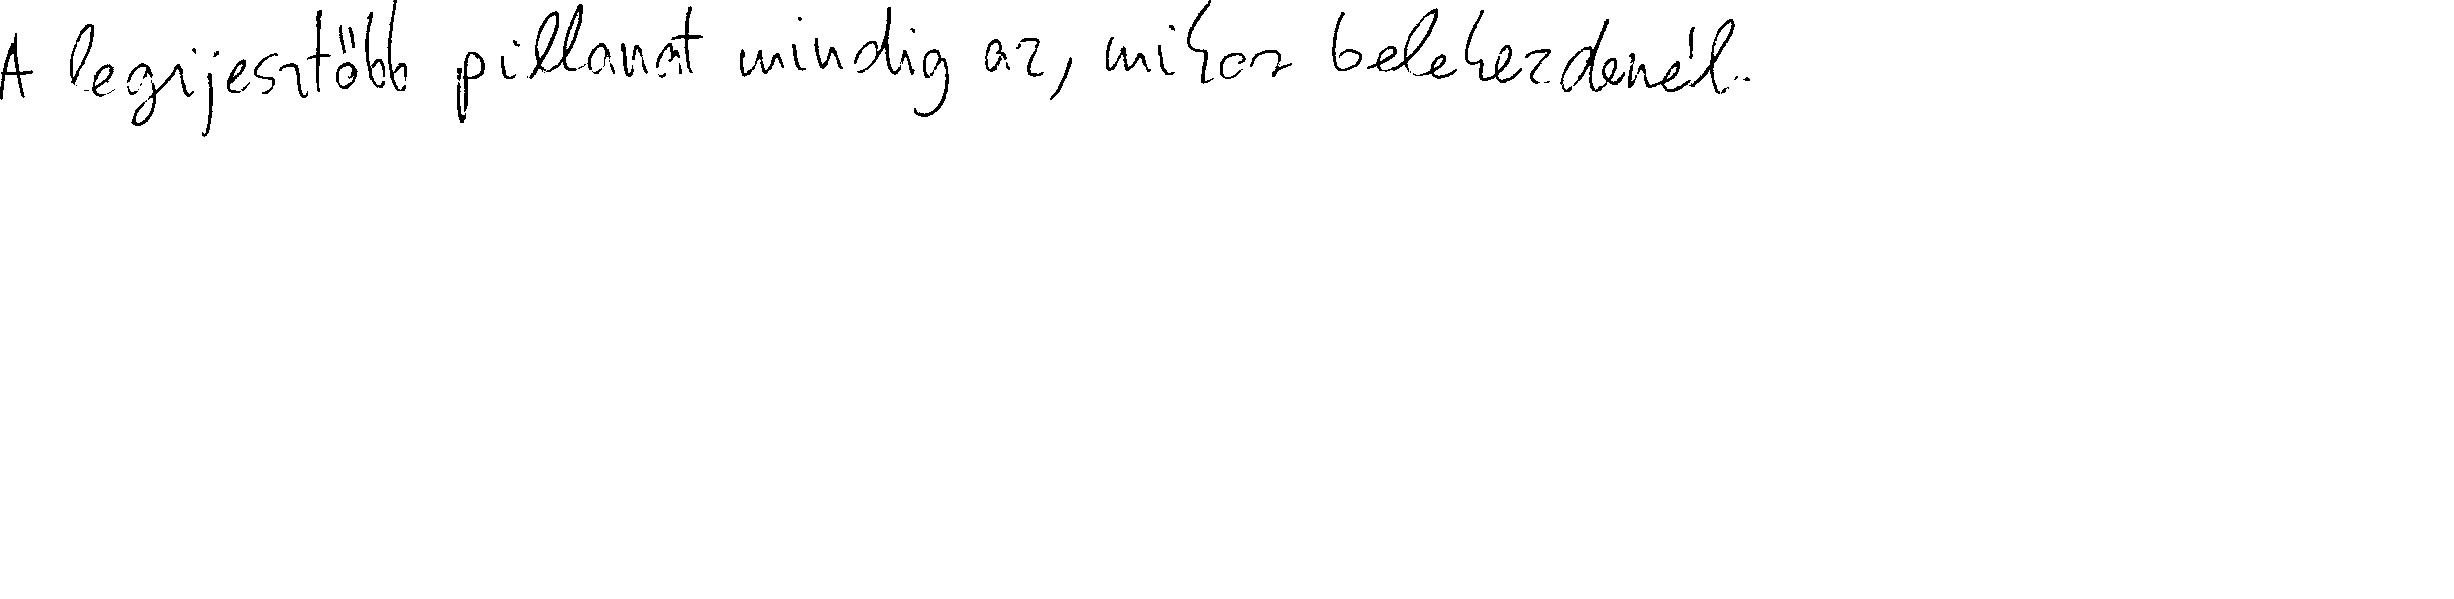 A legrijesztőbb pillanat mindig az, mikor belekezdenél.